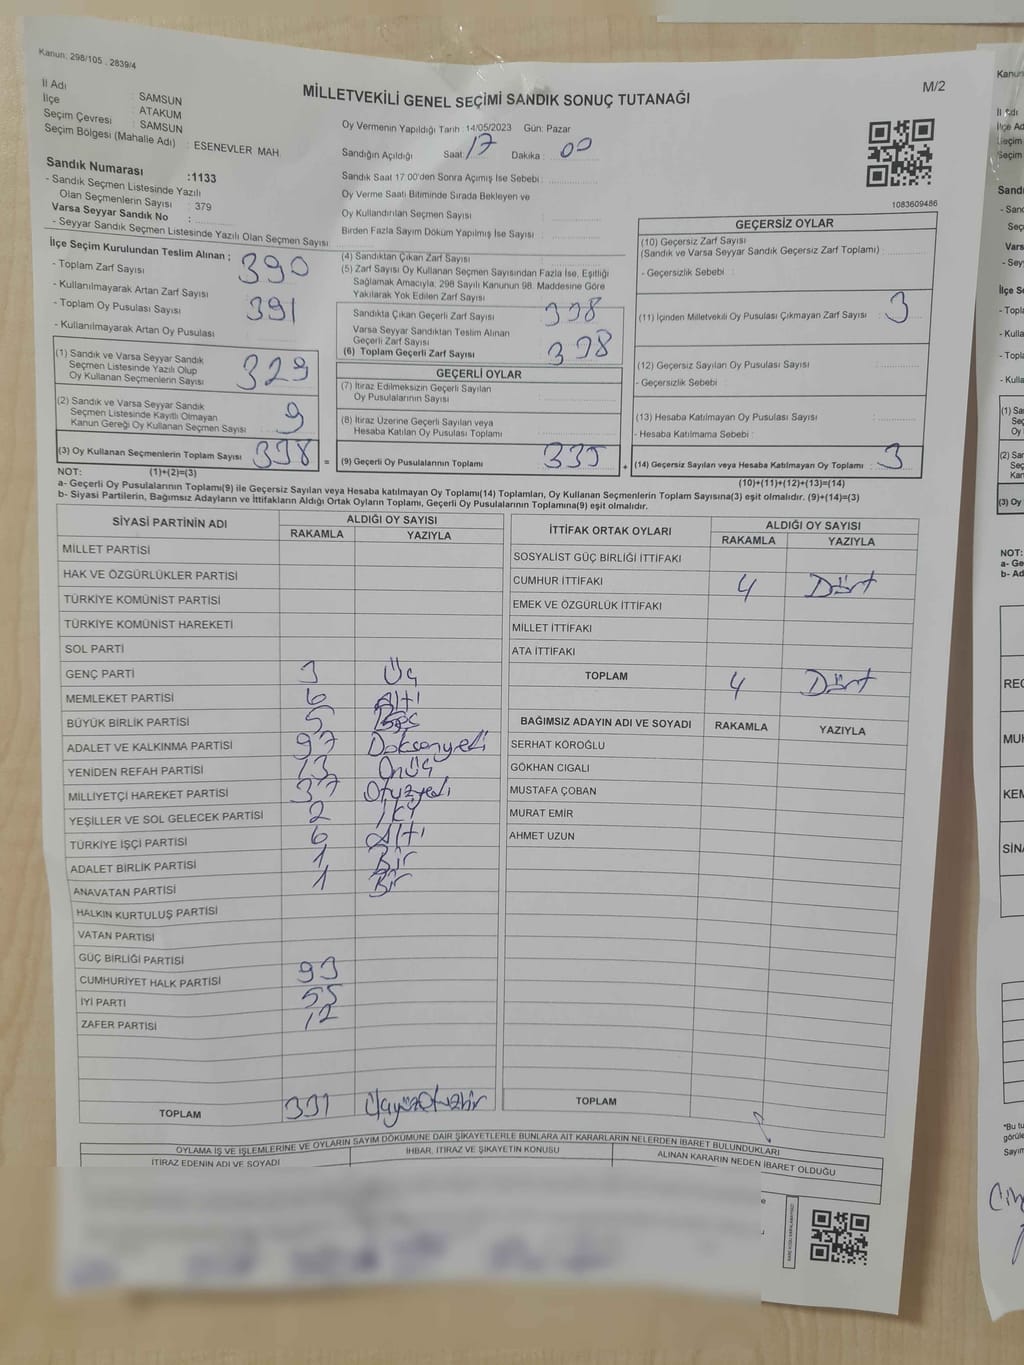 Kanun: 298/105 , 2839/4
M/2
MİLLETVEKİLİ GENEL SEÇİMİ SANDIK SONUÇ TUTANAĞI
İl Adı : SAMSUN
İlçe : ATAKUM
Seçim Çevresi : SAMSUN
Seçim Bölgesi (Mahalle Adı) : ESENEVLER MAH.
Sandık Numarası :1133
- Sandık Seçmen Listesinde Yazılı
Olan Seçmenlerin Sayısı : 379
Varsa Seyyar Sandık No :
- Seyyar Sandık Seçmen Listesinde Yazılı Olan Seçmen Sayısı :
Oy Vermenin Yapıldığı Tarih : 14/05/2023 Gün: Pazar
Sandığın Açıldığı Saat: 17 Dakika : 00
Sandık Saat 17:00'den Sonra Açımış İse Sebebi :
Oy Verme Saati Bitiminde Sırada Bekleyen ve
Oy Kullandırılan Seçmen Sayısı :
Birden Fazla Sayım Döküm Yapılmış İse Sayısı :
1083609486
İlçe Seçim Kurulundan Teslim Alınan ;
- Toplam Zarf Sayısı : 390
- Kullanılmayarak Artan Zarf Sayısı
- Toplam Oy Pusulası Sayısı : 391
- Kullanılmayarak Artan Oy Pusulası :
(1) Sandık ve Varsa Seyyar Sandık
Seçmen Listesinde Yazılı Olup
Oy Kullanan Seçmenlerin Sayısı : 329
(2) Sandık ve Varsa Seyyar Sandık
Seçmen Listesinde Kayıtlı Olmayan
Kanun Gereği Oy Kullanan Seçmen Sayısı : 9
(3) Oy Kullanan Seçmenlerin Toplam Sayısı : 338
(4) Sandıktan Çıkan Zarf Sayısı :
(5) Zarf Sayısı Oy Kullanan Seçmen Sayısından Fazla İse, Eşitliği
Sağlamak Amacıyla, 298 Sayılı Kanunun 98. Maddesine Göre
Yakılarak Yok Edilen Zarf Sayısı :
Sandıkta Çıkan Geçerli Zarf Sayısı : 338
Varsa Seyyar Sandıktan Teslim Alınan
Geçerli Zarf Sayısı
(6) Toplam Geçerli Zarf Sayısı : 338
GEÇERLİ OYLAR
(7) İtiraz Edilmeksizin Geçerli Sayılan
Oy Pusulalarının Sayısı :
(8) İtiraz Üzerine Geçerli Sayılan veya
Hesaba Katılan Oy Pusulası Toplamı :
= (9) Geçerli Oy Pusulalarının Toplamı : 335 +
GEÇERSİZ OYLAR
(10) Geçersiz Zarf Sayısı
(Sandık ve Varsa Seyyar Sandık Geçersiz Zarf Toplamı) :
- Geçersizlik Sebebi :
(11) İçinden Milletvekili Oy Pusulası Çıkmayan Zarf Sayısı : 3
(12) Geçersiz Sayılan Oy Pusulası Sayısı :
- Geçersizlik Sebebi :
(13) Hesaba Katılmayan Oy Pusulası Sayısı :
- Hesaba Katılmama Sebebi :
(14) Geçersiz Sayılan veya Hesaba Katılmayan Oy Toplamı : 3
NOT: (1)+(2)=(3)
(10)+(11)+(12)+(13)=(14)
a- Geçerli Oy Pusulalarının Toplamı(9) ile Geçersiz Sayılan veya Hesaba katılmayan Oy Toplamı(14) Toplamları, Oy Kullanan Seçmenlerin Toplam Sayısına(3) eşit olmalıdır. (9)+(14)=(3)
b- Siyasi Partilerin, Bağımsız Adayların ve İttifakların Aldığı Ortak Oyların Toplamı, Geçerli Oy Pusulalarının Toplamına(9) eşit olmalıdır.
SİYASİ PARTİNİN ADI ALDIĞI OY SAYISI
RAKAMLA YAZIYLA
MİLLET PARTİSİ
HAK VE ÖZGÜRLÜKLER PARTİSİ
TÜRKİYE KOMÜNİST PARTİSİ
TÜRKİYE KOMÜNİST HAREKETİ
SOL PARTİ
GENÇ PARTİ 3 Üç
MEMLEKET PARTİSİ 6 Altı
BÜYÜK BİRLİK PARTİSİ 5 Beş
ADALET VE KALKINMA PARTİSİ 97 Doksanyedi
YENİDEN REFAH PARTİSİ 13 Onüç
MİLLİYETÇİ HAREKET PARTİSİ 37 Otuzyedi
YEŞİLLER VE SOL GELECEK PARTİSİ 2 İki
TÜRKİYE İŞÇİ PARTİSİ 6 Altı
ADALET BİRLİK PARTİSİ 1 Bir
ANAVATAN PARTİSİ 1 Bir
HALKIN KURTULUŞ PARTİSİ
VATAN PARTİSİ
GÜÇ BİRLİĞİ PARTİSİ
CUMHURİYET HALK PARTİSİ 93
İYİ PARTİ 55
ZAFER PARTİSİ 12
TOPLAM 331 Üçyüzotuzbir
İTTİFAK ORTAK OYLARI ALDIĞI OY SAYISI
RAKAMLA YAZIYLA
SOSYALİST GÜÇ BİRLİĞİ İTTİFAKI
CUMHUR İTTİFAKI 4 Dört
EMEK VE ÖZGÜRLÜK İTTİFAKI
MİLLET İTTİFAKI
ATA İTTİFAKI
TOPLAM 4 Dört
BAĞIMSIZ ADAYIN ADI VE SOYADI RAKAMLA YAZIYLA
SERHAT KÖROĞLU
GÖKHAN CIGALI
MUSTAFA ÇOBAN
MURAT EMİR
AHMET UZUN
TOPLAM
OYLAMA İŞ VE İŞLEMLERİNE VE OYLARIN SAYIM DÖKÜMÜNE DAİR ŞİKAYETLERLE BUNLARA AİT KARARLARIN NELERDEN İBARET BULUNDUKLARI
İTİRAZ EDENİN ADI VE SOYADI İHBAR, İTİRAZ VE ŞİKAYETİN KONUSU ALINAN KARARIN NEDEN İBARET OLDUĞU